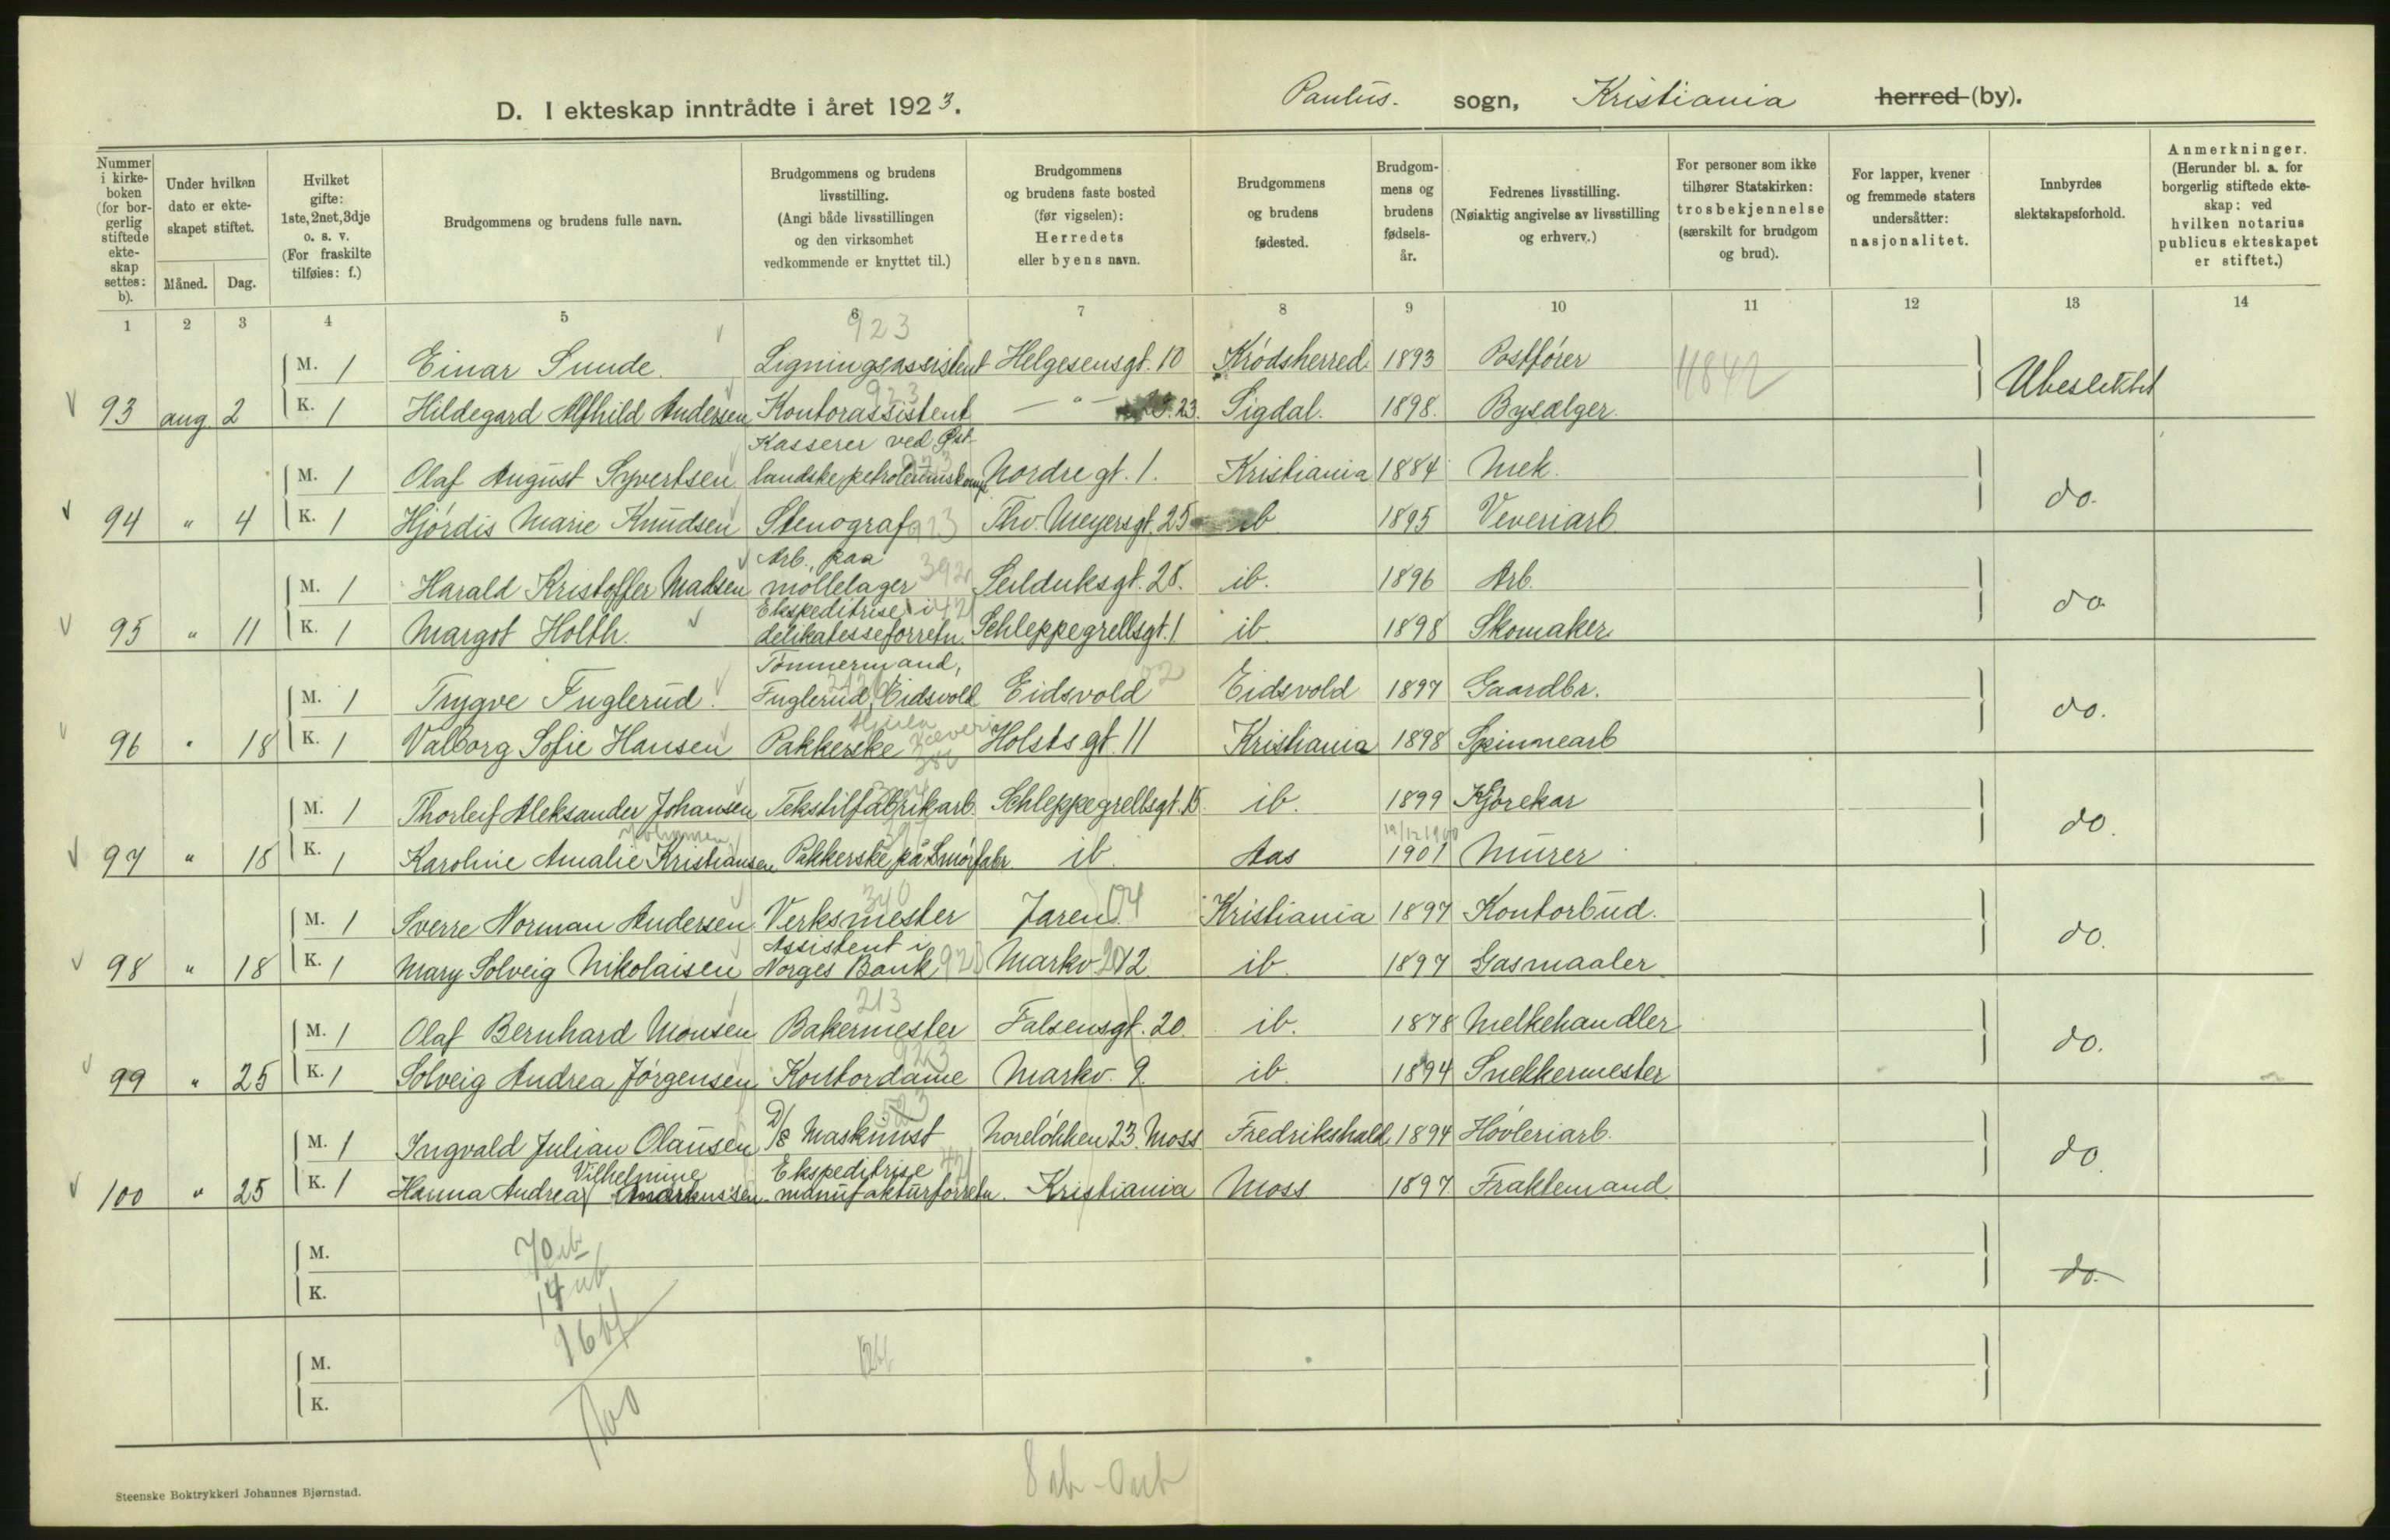 D. I ekteskap inntrådte i året 1923.
Paulus. sogn, Kristiania herred (by).
Nummer i kirkeboken (for borgerlig stiftede ekteskap settes: b).
Under hvilken dato er ekteskapet stiftet.
Måned. Dag.
Hvilket gifte: 1ste, 2net, 3dje o. s. v. (For fraskilte tilføies: f.)
Brudgommens og brudens fulle navn.
Brudgommens og brudens livsstilling. (Angi både livsstillingen og den virksomhet vedkommende er knyttet til.)
Brudgommens og brudens faste bosted (før vigselen): Herredets eller byens navn.
Brudgommens og brudens fødested.
Brudgommens og brudens fødselsår.
Fedrenes livsstilling. (Nøiaktig angivelse av livsstilling og erhverv.)
For personer som ikke tilhører Statskirken: trosbekjennelse (særskilt for brudgom og brud).
For lapper, kvener og fremmede staters undersåtter: nasjonalitet.
Innbyrdes slektskapsforhold.
Anmerkninger. (Herunder bl. a. for borgerlig stiftede ekteskap: ved hvilken notarius publicus ekteskapet er stiftet.)
1 2 3 4 5 6 7 8 9 10 11 12 13 14
923
M. 1 Einar Sunde. Ligningsassistent Helgesensgt. 10 Krödsherred 1893 Postförer 4842 Ubeslektet
923
93 aug. 2 K. 1 Hildegard Alfhild Andersen Kontorassistent — " — 23. Sigdal. 1898. Bysælger.
Kasserer ved Øst-
M. 1 Olaf August Syvertsen landske petroleumskomp. Nordre gt. 1. Kristiania 1884 Mek. do.
94 " 4 K. 1 Hjördis Marie Knudsen Stenograf 923 Thv. Meyersgt. 25 ib 1895 Veveriarb.
Arb. paa
M. 1 Harald Kristoffer Madsen möllelager 392 Seilduksgt. 28. ib. 1896 Arb. do.
Ekspeditrise i
95 " 11 K. 1 Margot Holth. delikatesseforretn. Schleppegrellsgt. 1 ib. 1898 Skomaker.
Tömmermand,
M. 1 Trygve Fuglerud. Fuglerud, Eidsvold Eidsvold Eidsvold 1897 Gaardbr. do.
Hjula Væveri
96 " 18 K. 1 Valborg Sofie Hansen Pakkerske Holsts gt. 11 Kristiania 1898 Spinnearb
M. 1 Thorleif Aleksander Johansen Tekstilfabrikarb. Schleppegrellsgt. 15. ib. 1899 Kjörekar do.
Johansen
19/12 1900
97 " 18 K. 1 Karoline Amalie Kristiansen Pakkerske på Smörfabr. ib. Aas 1901 Murer
340
M. 1 Sverre Norman Andersen Verksmester Jaren 04 Kristiania 1897 Kontorbud. do.
Assistent i
98 " 18 K. 1 Mary Solveig Nikolaisen Norges Bank 923 Markv. 12 ib. 1897 Gasmaaler
213
M. 1 Olaf Bernhard Monsen Bakermester Falsensgt. 20. ib. 1878 Melkehandler do.
923
99 " 25 K. 1 Solveig Andrea Jörgensen Kontordame Markv. 9. ib. 1894 Snekkermester
M. 1 Ingvald Julian Olausen D/S Maskinist Noreløkken 23. Moss Fredrikshald 1894 Hövleriarb. do.
Vilhelmine Ekspeditrise
100 " 25 K. 1 Hanna Andrea Markussen manufakturforretn. Kristiania Moss 1897 Fraktemand
M.
K. do.
M.
K.
Steenske Boktrykkeri Johannes Bjørnstad.